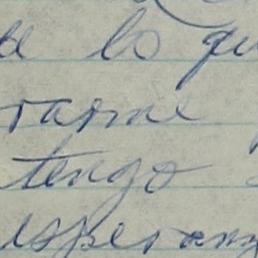 de lo qu
rarme
tengo
esperanz